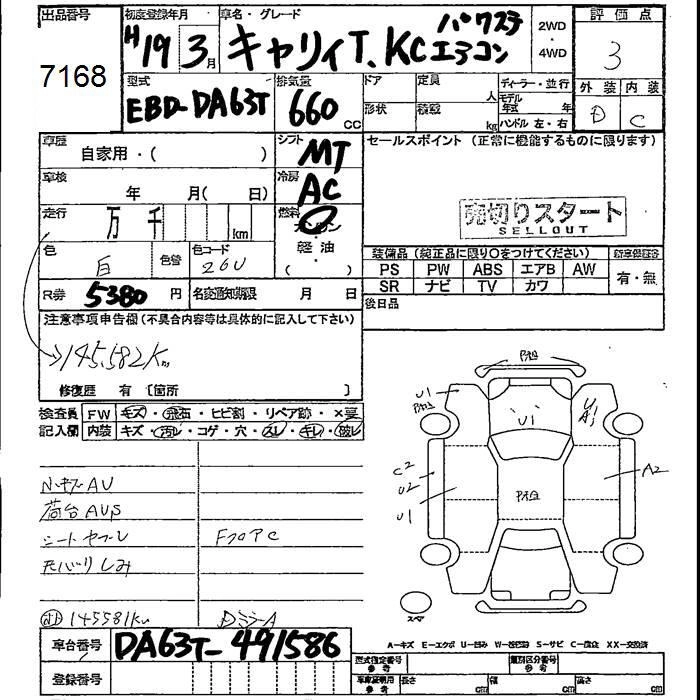 出品番号 初度登録年月 車名・グレード 評価点
7168 H19 3月 キャリィT、KCエアコン パワステ 2WD・4WD 3
型式 排気量 ドア 定員 人 ディーラー・並行 外装 内装
EBD-DA63T 660cc 形状 積載 kg モデル年式 年 D C
ハンドル 左・右
車歴 自家用・( ) シフト MT セールスポイント (正常に機能するものに限ります)
車検 年 月( 日) 冷房 AC
走行 万 千 km 燃料 ガソリン
売切りスタート
SELLOUT
色 白 色替 色コード 26U 軽油・( ) 装備品 (純正品に限り○をつけてください) 新車保証書
PS PW ABS エアB AW 有・無
R券 5380円 名変通知期限 月 日 SR ナビ TV カワ
後日品
注意事項申告欄 (不具合内容等は具体的に記入して下さい)
145,582Km
修復歴 有 〔箇所 〕
検査員 FW キズ・飛石・ヒビ割・リペア跡・×要
記入欄 内装 キズ・汚レ・コゲ・穴・スレ・キレ・破レ
荷台
F
145581km
車台番号 DA63T-491586
登録番号
P付 U1 U1 U A1 C2 U2 U1 A2
スペア
A=キズ E=エクボ U=凹み W=波 S=サビ C=腐食 XX=交換済
型式指定番号 参考 類別区分番号 参考
車庫証明用 参考 長さ cm 幅 cm 高さ cm